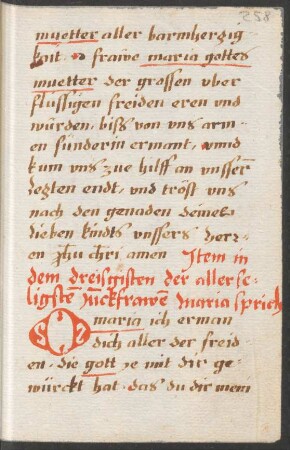 258
muetter aller barmhertzig
kait · o frawe maria gottes
muetter der grossen vber
flussigen freiden eren vnd
würden · biß von vns arm-
en sünderin ermant, vnnd
kum vns zue hilff an vnsserm
letzten endt, vnd tröst vns
nach den genaden deines
lieben kindts vnssers herz-
en jhu chri amen Item in
dem dreisgisten der aller se-
ligsten Juckfrawen maria sprich
O maria ich erman
dich aller der freid-
en, die gott ye mit dir ge-
würckt hat · das du dir mein